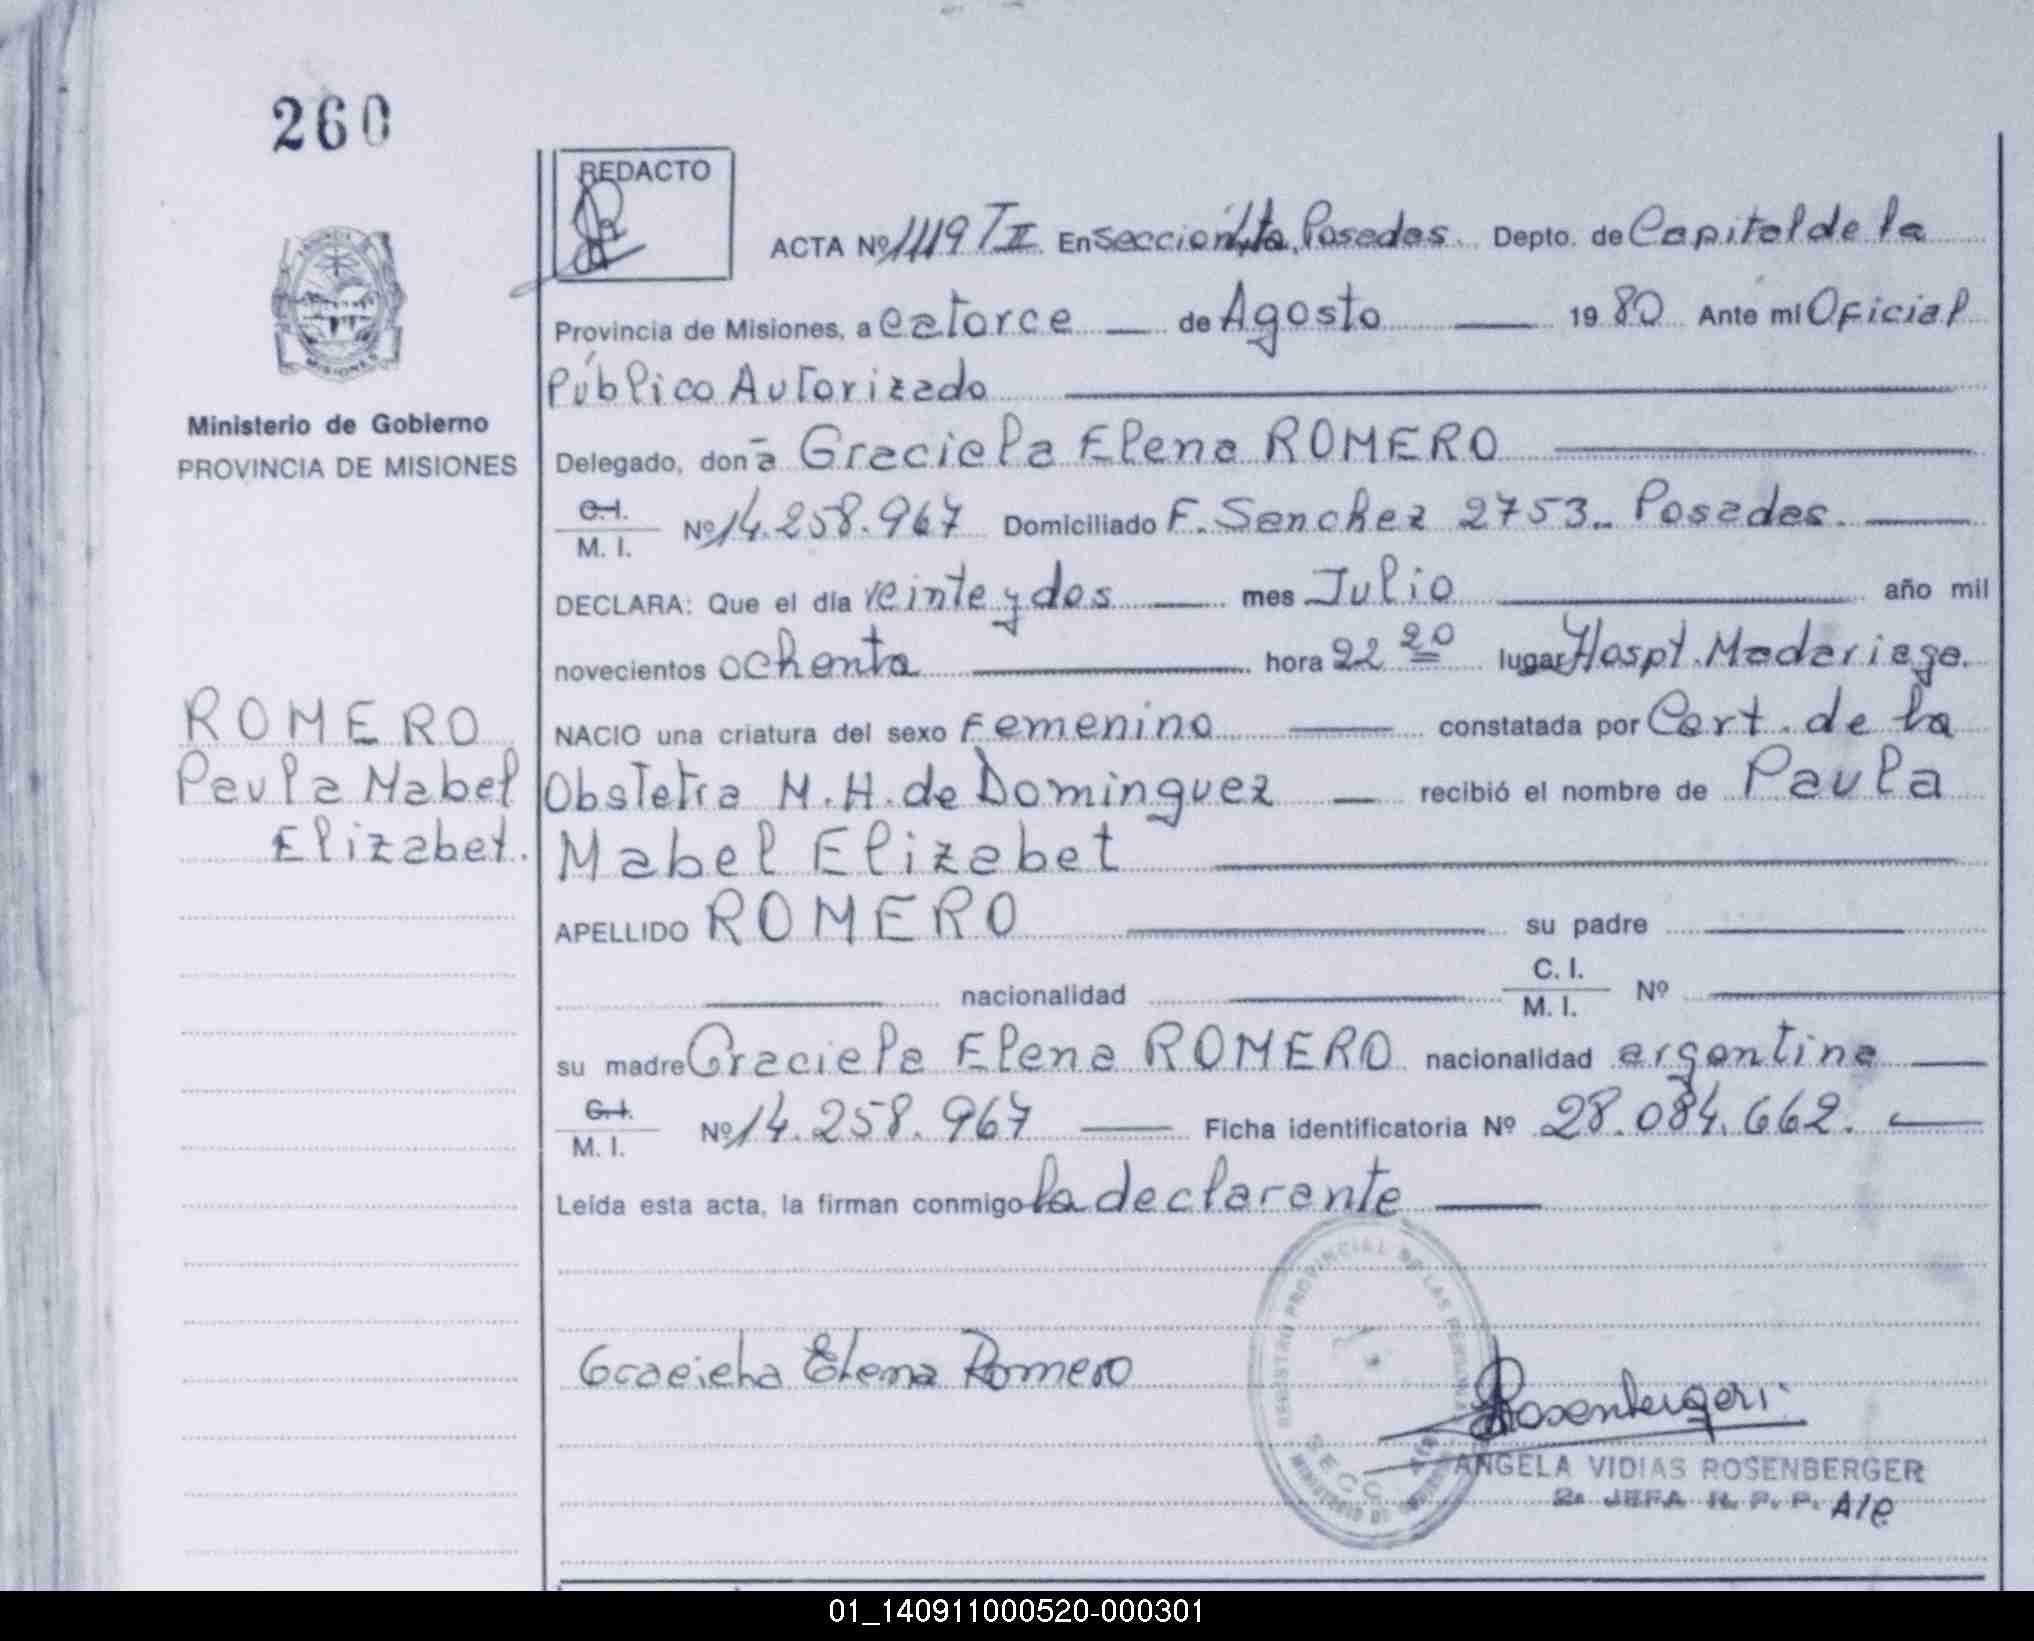 260
REDACTO
ACTA Nº 1119 T II En Sección 4ta. Posadas. Depto. de Capital de la
Provincia de Misiones, a catorce — de Agosto — 19 80 Ante mi Oficial
Público Autorizado
Ministerio de Gobierno
PROVINCIA DE MISIONES
Delegado, don ã Graciela Elena ROMERO
C.I.
M. I. Nº 14.258.967 Domiciliado F. Sanchez 2753.. Posadas.
DECLARA: Que el día veinte y dos — mes Julio — año mil
novecientos ochenta — hora 22 20 lugar Hospt. Madariaga.
ROMERO
Paula Mabel
Elizabet.
NACIO una criatura del sexo Femenino — constatada por Cert. de la
Obstetra M. H. de Dominguez — recibió el nombre de Paula
Mabel Elizabet
APELLIDO ROMERO — su padre —
— nacionalidad — C. I.
M. I. Nº —
su madre Graciela Elena ROMERO nacionalidad argentina —
C.I.
M. I. Nº 14.258.967 — Ficha identificatoria Nº 28.084.662. —
Leída esta acta, la firman conmigo la declarante —
Graciela Elena Romero
REGISTRO PROVINCIAL DE LAS PERSONAS
SECC.
MINISTERIO DE GOBIERNO
Rosenberger
ANGELA VIDIAS ROSENBERGER
2a JEFA R. P. P. A/C
01_140911000520-000301